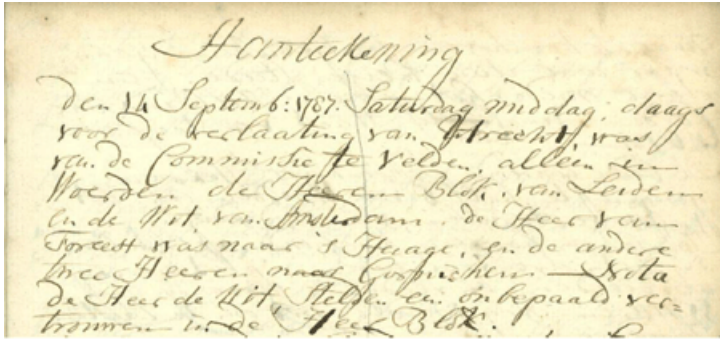 Aanteekening
den 14 Septemb: 1787. Saturdag middag, daags
voor de verlaating van Utrecht, was
van de Commissie te Velden, allein in
Woerden de Heeren Blok, van Leiden
en de Wit van Amsterdam. de Heer van
Foreest was naar 's Haage, en de andere
twee Heeren naar Gorinchem — Nota
de Heer de Wit, stelden een onbepaald ver=
trouwen in de Heer Blok.